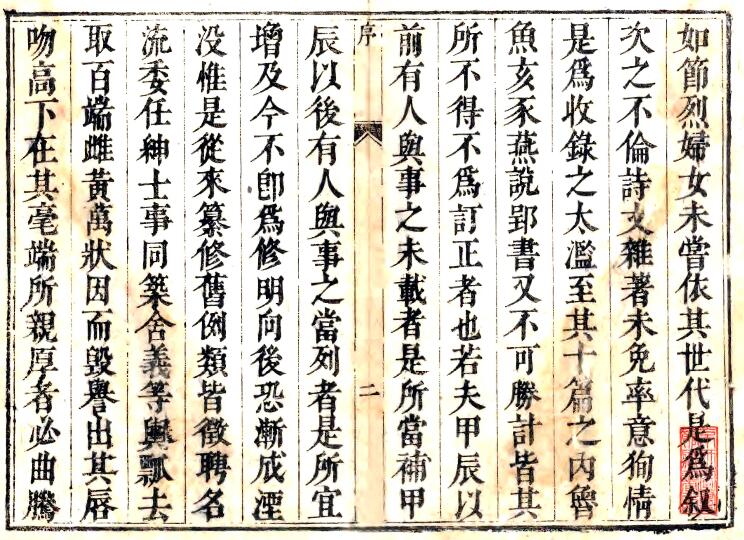 如節烈婦女未嘗依其世代是爲叙
次之不倫詩文雜著未免率意狥情
是爲收錄之太濫至其十篇之內魯
魚亥豕燕說郢書又不可勝計皆其
所不得不爲訂正者也若夫甲辰以
前有人與事之未載者是所當補甲
序 二
辰以後有人與事之當列者是所宜
增及今不卽爲修明向後恐漸成湮
没惟是從來纂修舊例類皆徵聘名
流委任紳士事同築舍義等輿瓢去
取百端雌黃萬狀因而毀譽出其唇
吻高下在其毫端所親厚者必曲騰